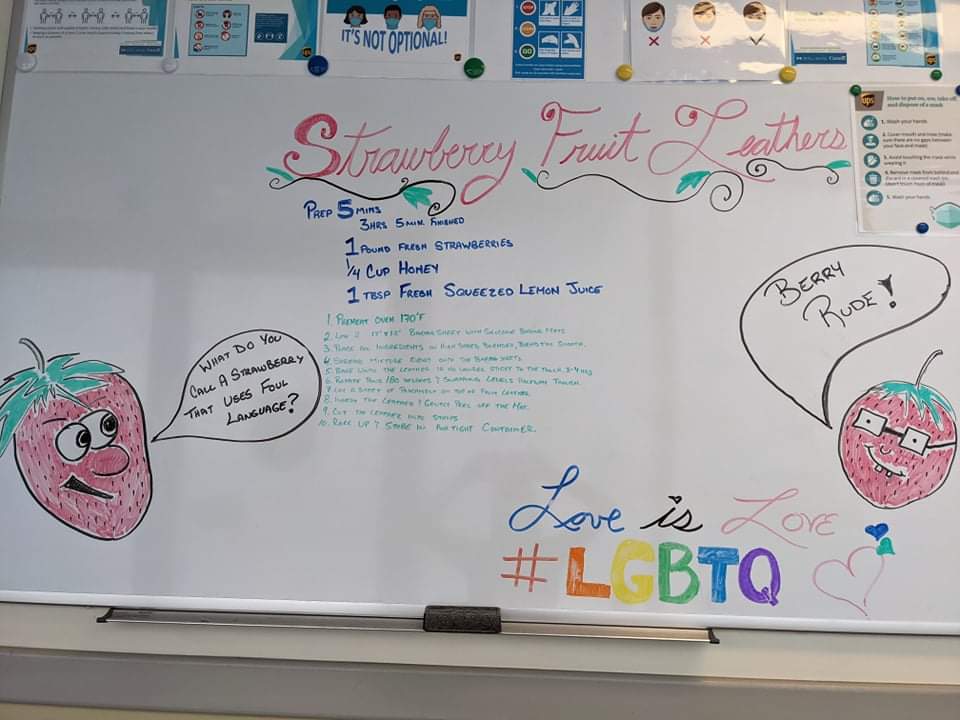 IT'S NOT OPTIONAL!
STOP
GO
ups
How to put on, use, take off,
and dispose of a mask
1. Wash your hands
2. Cover mouth and nose (make
sure there are no gaps between
your face and mask)
3. Avoid touching the mask while
wearing it
4. Remove mask from behind and
5. Wash your hands
Strawberry Fruit Leathers
PREP 5 MINS
3HRS 5MIN FINISHED
1 POUND FRESH STRAWBERRIES
1/4 CUP HONEY
1 TBSP FRESH SQUEEZED LEMON JUICE
1. PREHEAT OVEN 170°F
2. LINE 2 BAKING SHEET WITH SILICONE BAKING MATS
3. PLACE ALL INGREDIENTS IN HIGH SPEED BLENDER, BLEND TIL SMOOTH.
4. SPREAD MIXTURE EVENLY ONTO THE BAKING SHEETS
5. BAKE UNTIL THE LEATHER IS NO LONGER STICKY TO THE TOUCH. 3-4 HRS
6. ROTATE PANS 180 DEGREES & SWAPPING LEVELS HALFWAY THROUGH.
7. LAY A SHEET OF PARCHMENT ON TOP OF FRUIT LEATHER
8. INVERT THE LEATHER & GENTLY PEEL OFF THE MAT.
9. CUT THE LEATHER INTO STRIPS
10. ROLL UP & STORE IN AIRTIGHT CONTAINER.
WHAT DO YOU
CALL A STRAWBERRY
THAT USES FOUL
LANGUAGE?
BERRY
RUDE!
Love is Love
#LGBTQ